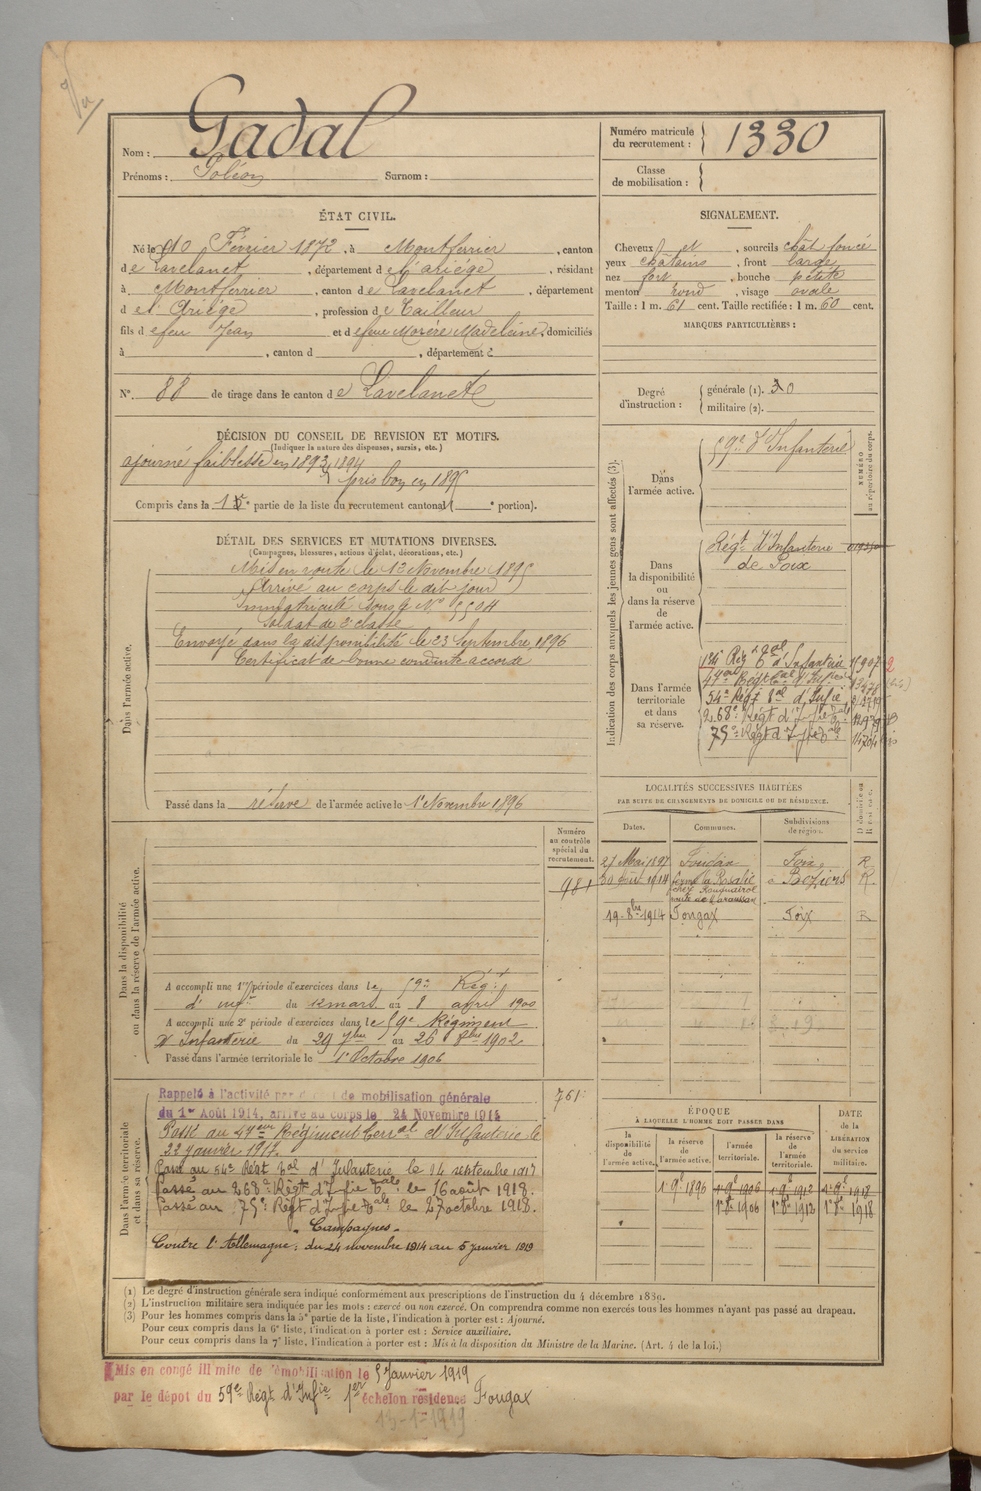 Nom : Gadal
Prénoms : Poléon Surnom :
Numéro matricule du recrutement : 1330
Classe de mobilisation :
ÉTAT CIVIL.
Né le 10 Février 1872, à Montferrier, canton
de Lavelanet, département de l'ariége, résidant
à Montferrier, canton de Lavelanet, département
de l'Ariége, profession de Tailleur
fils de feu Jean et de feue Mozère Madeleine, domiciliés
à , canton d , département d
N° 88 de tirage dans le canton de Lavelanet
SIGNALEMENT.
Cheveux et , sourcils chât foncé
yeux châtains , front large
nez fort , bouche petite
menton rond , visage ovale
Taille : 1 m. 61 cent. Taille rectifiée : 1 m. 60 cent.
MARQUES PARTICULIÈRES :
Degré d'instruction : générale (1). 30
militaire (2).
DÉCISION DU CONSEIL DE REVISION ET MOTIFS.
(Indiquer la nature des dispenses, sursis, etc.)
ajourné faiblesse en 1893, 1894
pris bon en 1895
Compris dans la 1e partie de la liste du recrutement cantonal ( e portion).
DÉTAIL DES SERVICES ET MUTATIONS DIVERSES.
(Campagnes, blessures, actions d'éclat, décorations, etc.)
Dans l'armée active.
Mis en route le 12 Novembre 1895
Arrivé au corps le dit jour
Immatriculé sous le N° 5504
Soldat de 2e classe
Envoyé dans la disponibilité le 23 Septembre 1896
Certificat de bonne conduite accordé
Passé dans la réserve de l'armée active le 1er Novembre 1896
Indication des corps auxquels les jeunes gens sont affectés (3).
NUMÉRO au répertoire du corps.
Dans l'armée active.
59e d'Infanterie
Dans la disponibilité ou dans la réserve de l'armée active.
Régt d'Infanterie
de Foix
Dans l'armée territoriale et dans sa réserve.
134e Rég tal d'Infanterie 15907
54e Régt tal d'Infie
268e Régt d'Infie tale
75e Régt d'Infie tale 14704
LOCALITÉS SUCCESSIVES HABITÉES
PAR SUITE DE CHANGEMENTS DE DOMICILE OU DE RÉSIDENCE.
Dates. Communes. Subdivisions de région. D Domicile ou R Résidence.
27 Mai 1897 Foix. R
30 août 1914 ferme la Rosalie Beziers R.
route de Maraussan
19-8bre 1914 Fougax Foix R
Numéro au contrôle spécial du recrutement.
981
Dans la disponibilité ou dans la réserve de l'armée active.
A accompli une 1re période d'exercices dans le 59e Rég.t
d'infrie du 12 mars au 8 avril 1900
A accompli une 2e période d'exercices dans le 59e Régiment
d'Infanterie du 29 7bre au 26 8bre 1902
Passé dans l'armée territoriale le 1er Octobre 1906
Dans l'armée territoriale et dans sa réserve.
761
Rappelé à l'activité par décret de mobilisation générale
du 1er Août 1914, arrivé au corps le 24 Novembre 1914
Passé au 44eme Régiment terr.al d'Infanterie le
22 janvier 1917.
Passé au 54e Régt tal d'Infanterie le 14 septembre 1917
Passé au 268e Régt d'Infie tale le 16 août 1918.
Passé au 75e Régt d'Infie tale le 27 octobre 1918.
Campagnes
Contre l'Allemagne : du 24 novembre 1914 au 5 janvier 1919
ÉPOQUE
À LAQUELLE L'HOMME DOIT PASSER DANS
la disponibilité de l'armée active. la réserve de l'armée active. l'armée territoriale. la réserve de l'armée territoriale.
DATE de la LIBÉRATION du service militaire.
1er 9bre 1896 1er 9bre 1906 1er 9bre 1912 1er 9bre 1918
1er 8bre 1906 1er 8bre 1912 1er 8bre 1918
(1) Le degré d'instruction générale sera indiqué conformément aux prescriptions de l'instruction du 4 décembre 1889.
(2) L'instruction militaire sera indiquée par les mots : exercé ou non exercé. On comprendra comme non exercés tous les hommes n'ayant pas passé au drapeau.
(3) Pour les hommes compris dans la 5e partie de la liste, l'indication à porter est : Ajourné.
Pour ceux compris dans la 6e liste, l'indication à porter est : Service auxiliaire.
Pour ceux compris dans la 7e liste, l'indication à porter est : Mis à la disposition du Ministre de la Marine. (Art. 4 de la loi.)
Mis en congé illimité de démobilisation le 5 Janvier 1919
par le dépôt du 59e Régt d'Infie 1er échelon résidence Fougax
13-1-1919